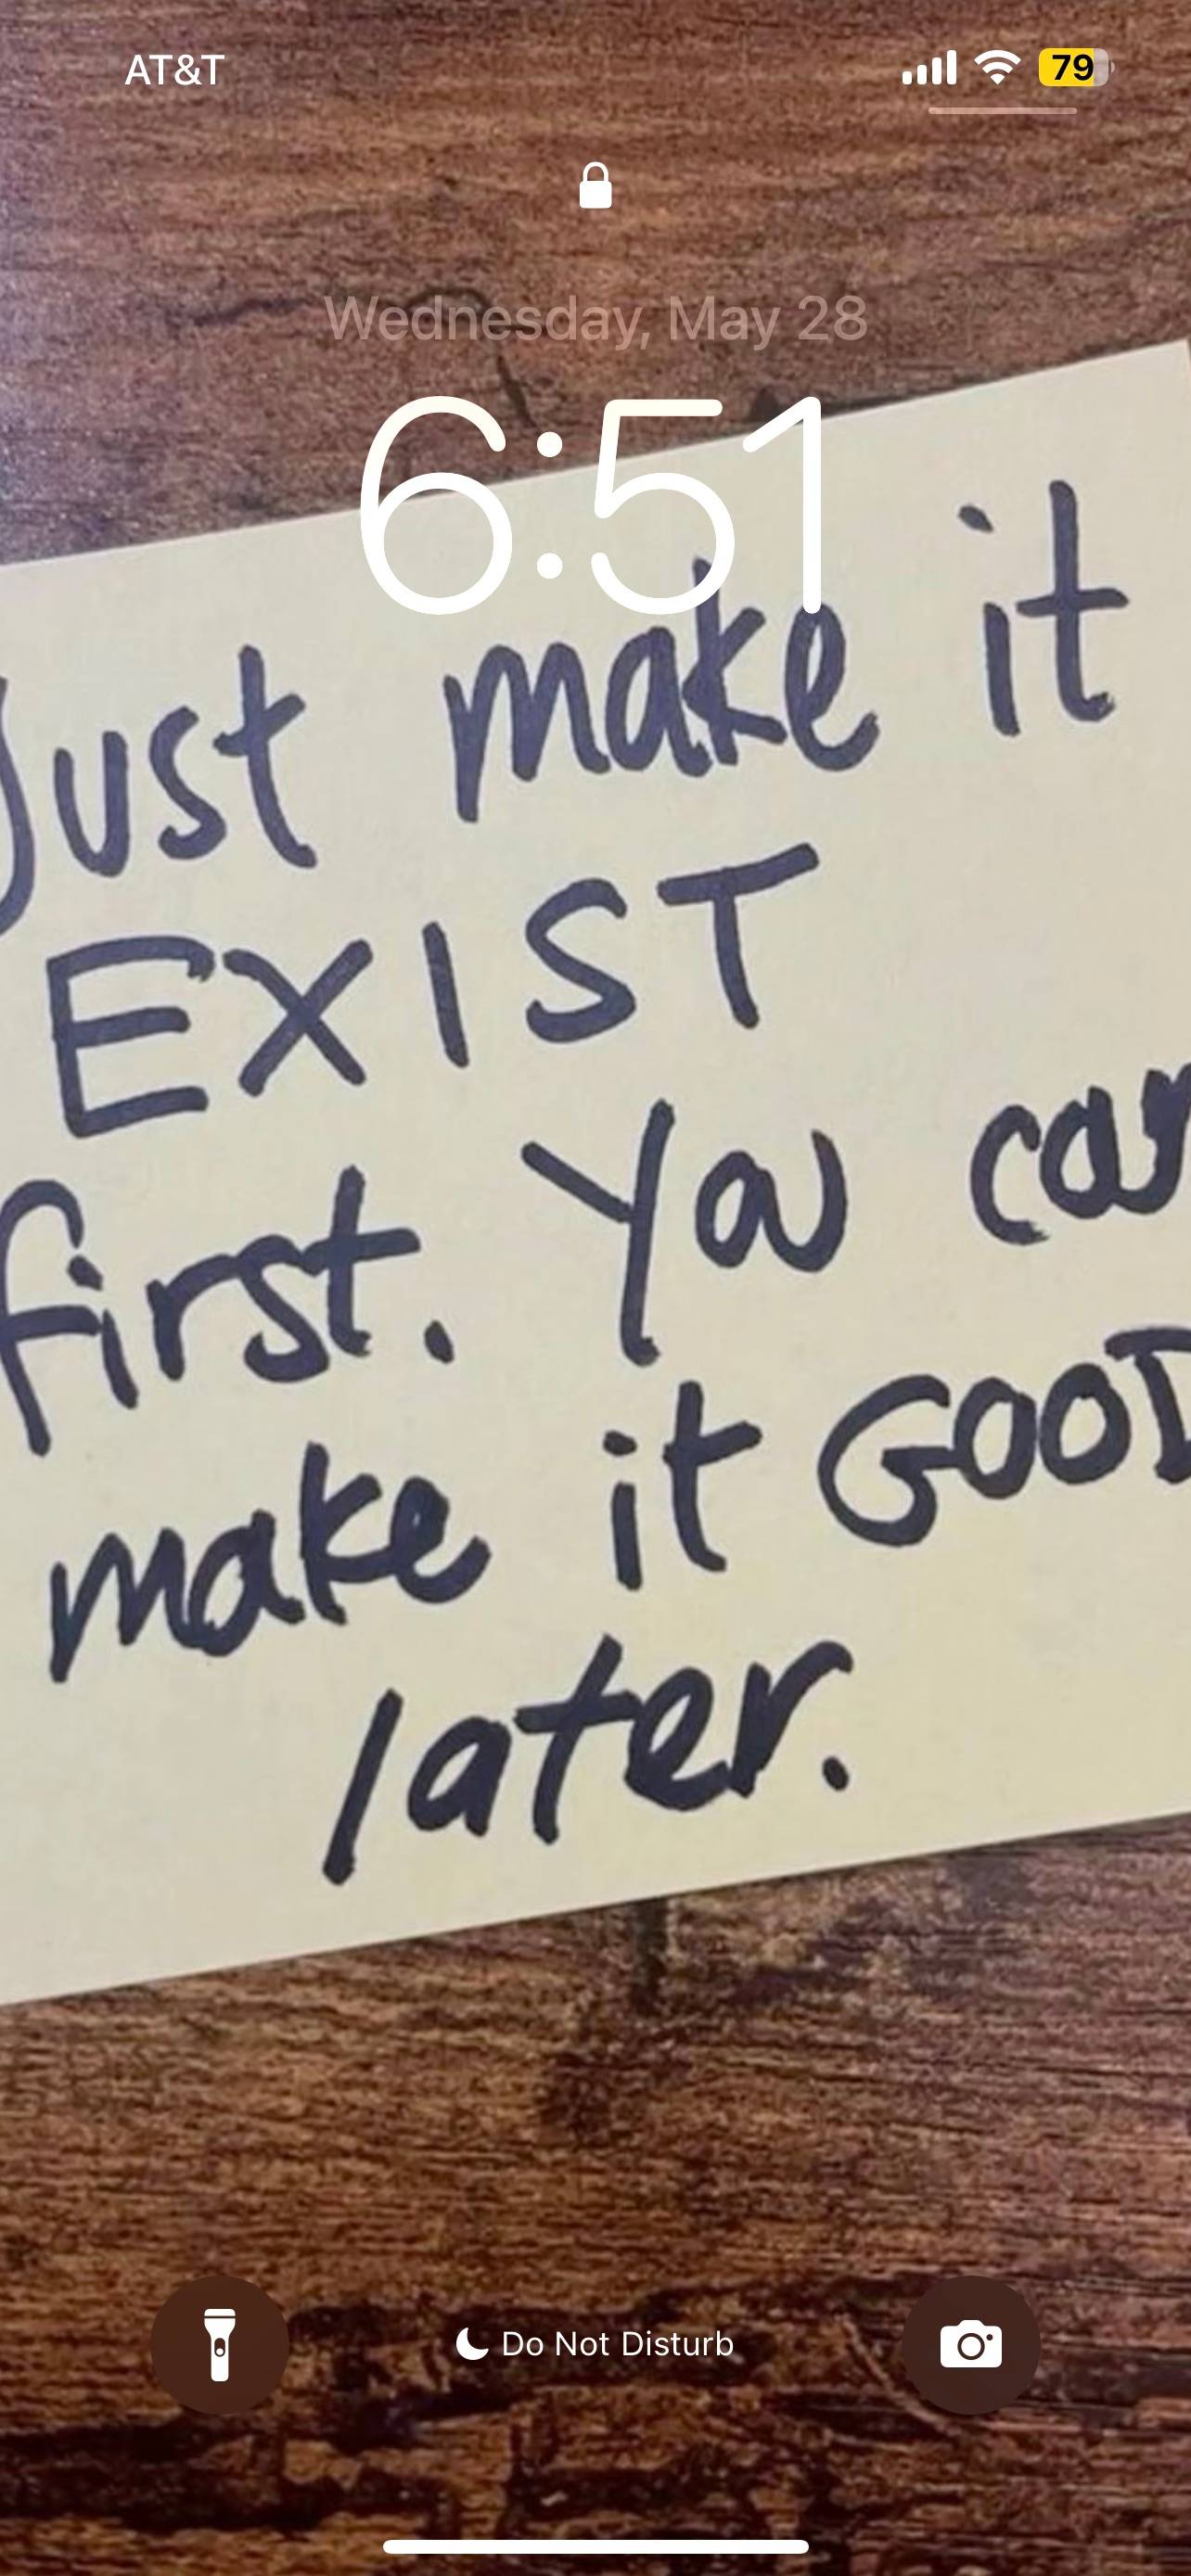 AT&T 79
Wednesday, May 28
6:51
Just make it
EXIST
first. You can
make it GOOD
later.
Do Not Disturb